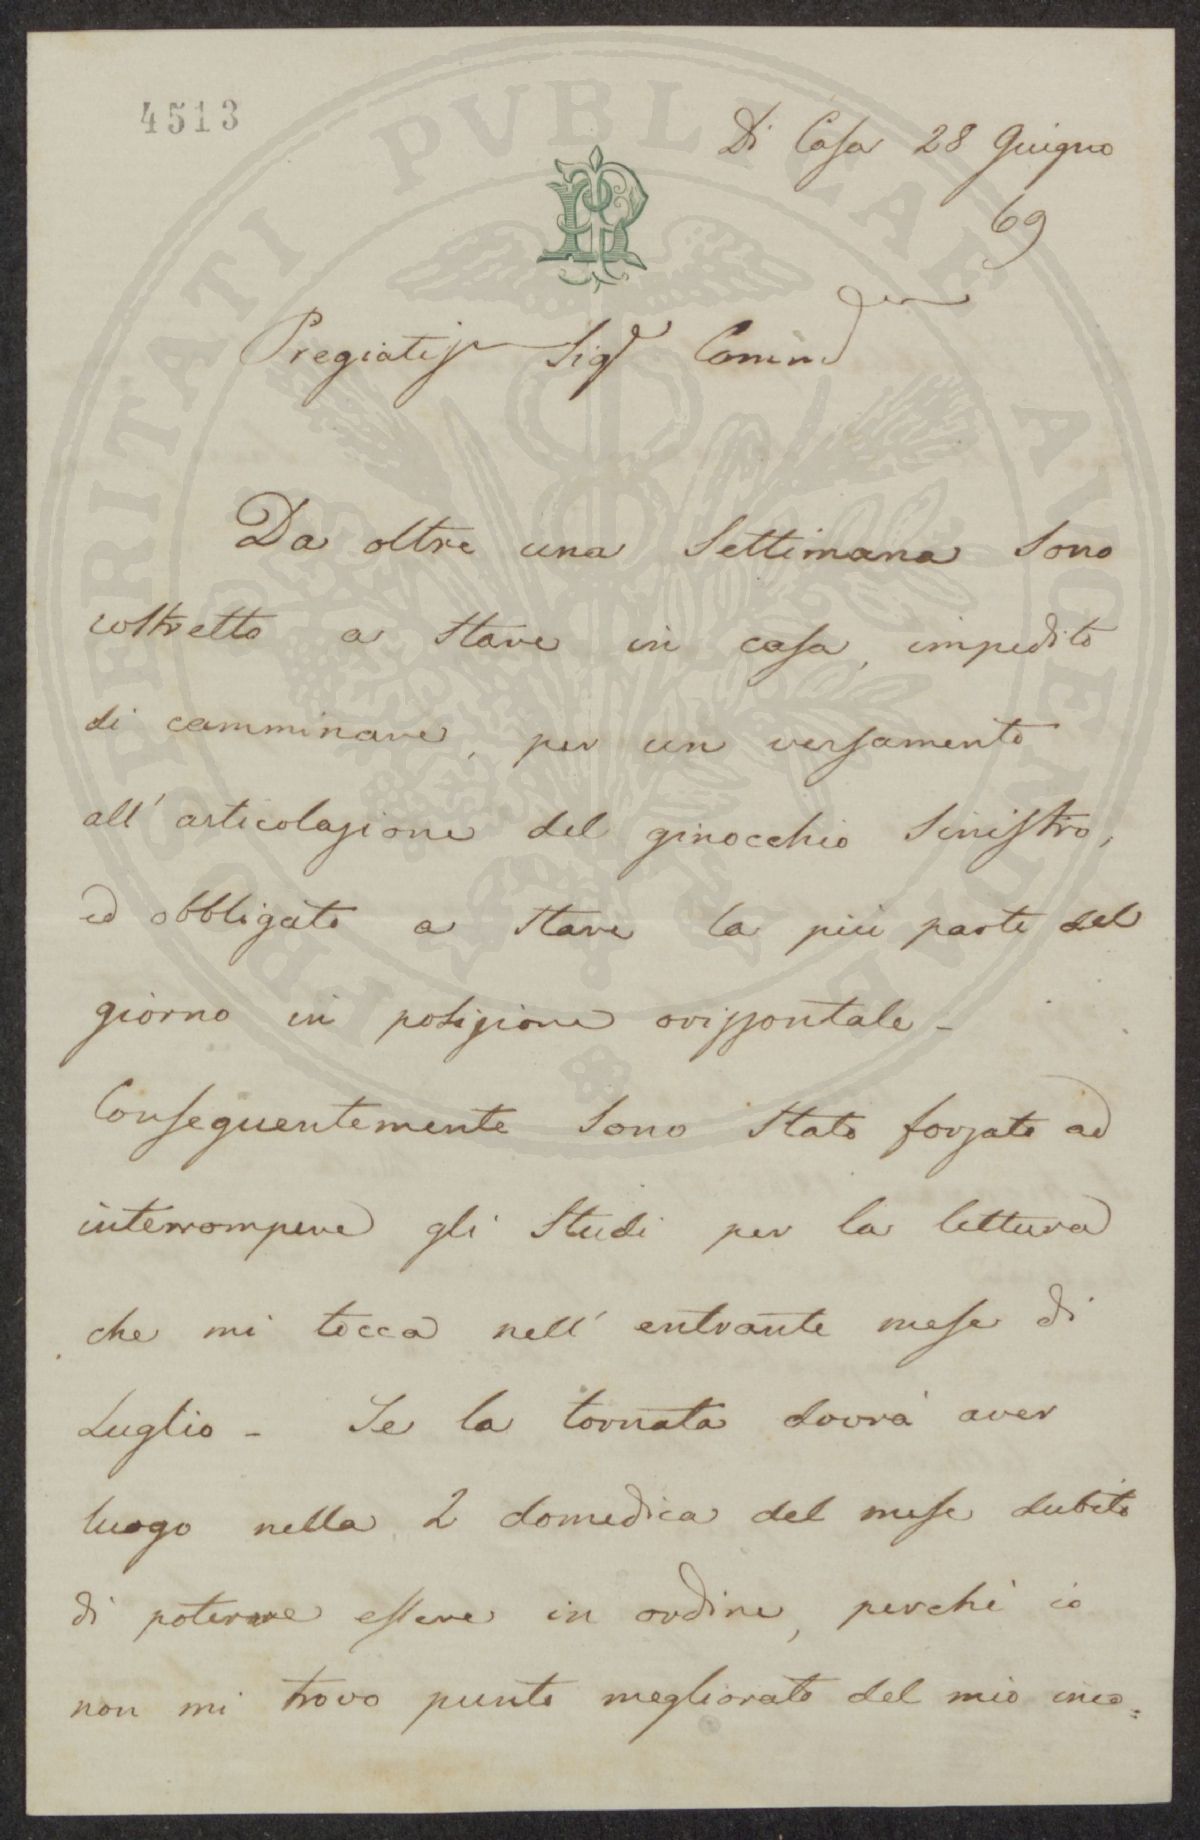 4513
PROSPERITATI PVBLICAE AVGENDAE
PR
Di Casa 28 Giugno
69
Pregiatiss Sigr Commder
Da oltre una Settimana sono
costretto a stare in casa, impedito
di camminare, per un versamento
all'articolazione del ginocchio sinistro,
ed obbligato a stare la più parte del
giorno in posizione orizzontale -
Conseguentemente sono stato forzato ad
interrompere gli studi per la lettura
che mi tocca nell'entrante mese di
Luglio - Se la tornata dovrà aver
luogo nella 2 domedica del mese dubito
di poterne essere in ordine, perchè io
non mi trovo punto megliorato del mio inco=